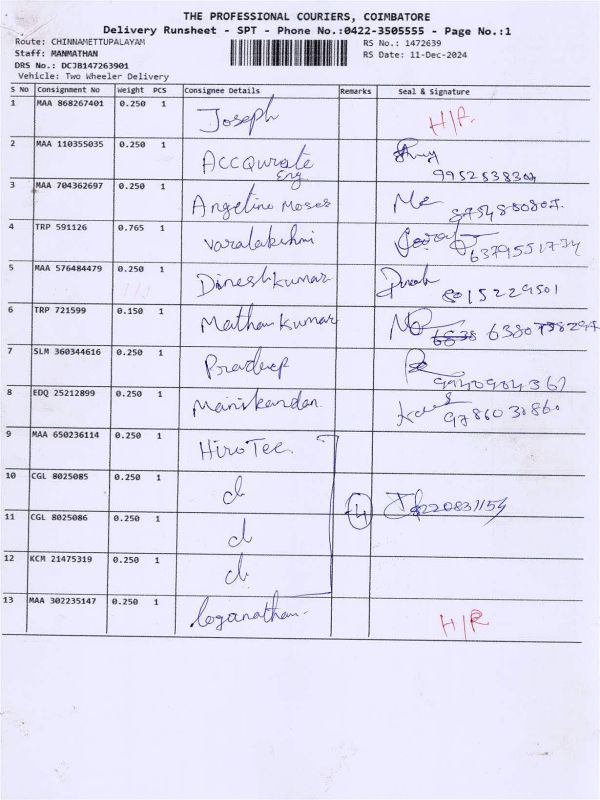 THE PROFESSIONAL COURIERS, COIMBATORE
Delivery Runsheet - SPT - Phone No.:0422-3505555 - Page No.:1
Route: CHINNAMETTUPALAYAM RS No.: 1472639
Staff: MANMATHAN RS Date: 11-Dec-2024
DRS No.: DCJB147263901
Vehicle: Two Wheeler Delivery
S No Consignment No Weight PCS Consignee Details Remarks Seal & Signature
1 MAA 868267401 0.250 1 Joseph H/R
2 MAA 110355035 0.250 1 Accqurate
Eng 9952538304
3 MAA 704362697 0.250 1 Angeline Moses 8754850807
4 TRP 591126 0.765 1 Varalakshmi 6379551734
5 MAA 576484479 0.250 1 Dineshkumar 8015229501
6 TRP 721599 0.150 1 Mathankumar
7 SLM 360344616 0.250 1 Pradeep 9940904361
8 EDQ 25212899 0.250 1 Manikandan 9786030860
9 MAA 650236114 0.250 1 HiroTec
10 CGL 8025085 0.250 1 d 4
11 CGL 8025086 0.250 1 d
12 KCM 21475319 0.250 1 d
13 MAA 302235147 0.250 1 Loganathan H/R